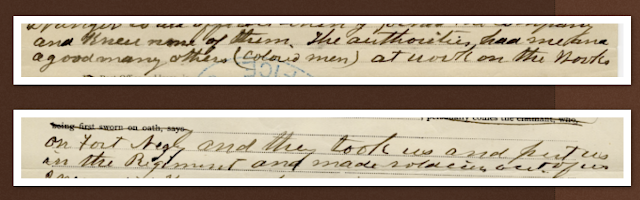 stranger to all officers when I joined the Company
and Knew none of them. The authorities, had me and
a good many others (colored men) at work on the Works
OFFICE
personally comes the claimant, who,
being first sworn on oath, says
on Fort Negly and they took us and put us
in the Regiment and made soldiers out of us